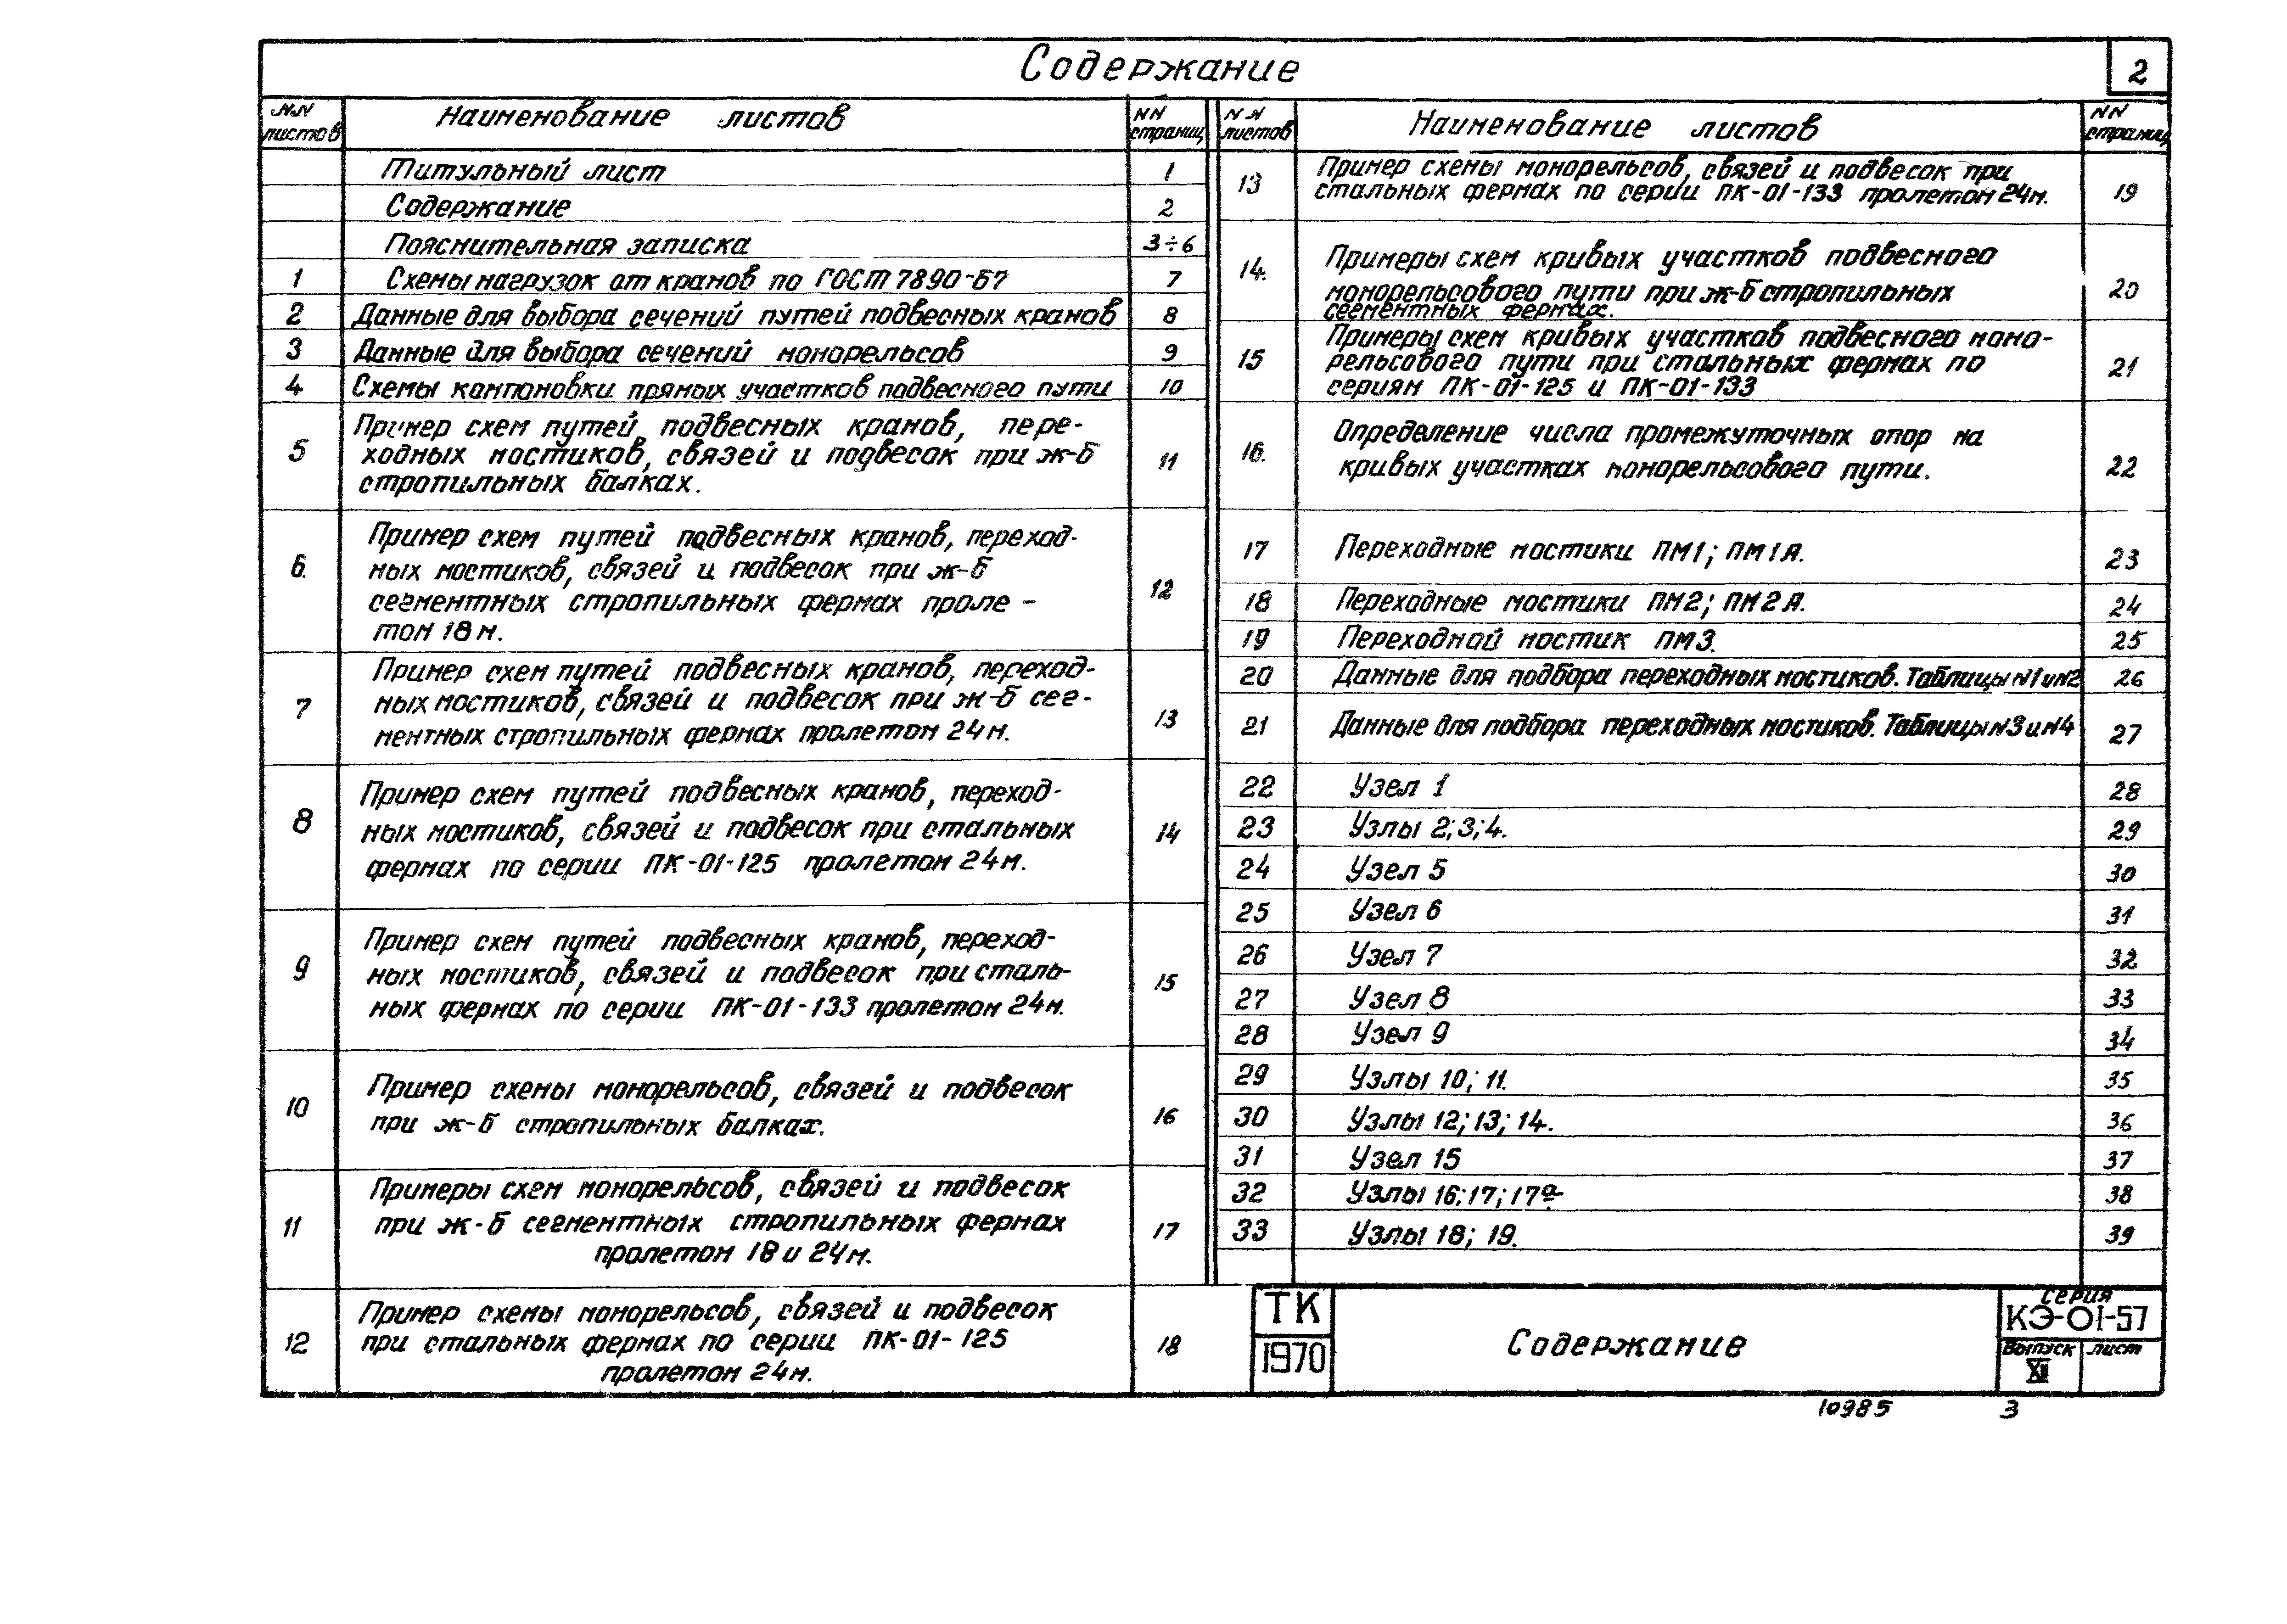 Содержание
2
NN листов
Наименование листов
NN страниц
Титульный лист 1
Содержание 2
Пояснительная записка 3÷6
1 Схемы нагрузок от кранов по ГОСТ 7890-67 7
2 Данные для выбора сечений путей подвесных кранов 8
3 Данные для выбора сечений монорельсов 9
4 Схемы компоновки прямых участков подвесного пути 10
5 Пример схем путей подвесных кранов, пере-
ходных мостиков, связей и подвесок при ж-б 11
стропильных балках.
6. Пример схем путей подвесных кранов, переход-
ных мостиков, связей и подвесок при ж-б
сегментных стропильных фермах проле- 12
том 18 м.
7 Пример схем путей подвесных кранов, переход-
ных мостиков, связей и подвесок при ж-б сег- 13
ментных стропильных фермах пролетом 24 м.
8 Пример схем путей подвесных кранов, переход-
ных мостиков, связей и подвесок при стальных 14
фермах по серии ПК-01-125 пролетом 24 м.
9 Пример схем путей подвесных кранов, переход-
ных мостиков, связей и подвесок при сталь- 15
ных фермах по серии ПК-01-133 пролетом 24 м.
10 Пример схемы монорельсов, связей и подвесок
при ж-б стропильных балках. 16
11 Примеры схем монорельсов, связей и подвесок
при ж-б сегментных стропильных фермах 17
пролетом 18 и 24 м.
12 Пример схемы монорельсов, связей и подвесок
при стальных фермах по серии ПК-01-125 18
пролетом 24 м.
NN листов
Наименование листов
NN страниц
13 Пример схемы монорельсов, связей и подвесок при
стальных фермах по серии ПК-01-133 пролетом 24 м. 19
14. Примеры схем кривых участков подвесного
монорельсового пути при ж-б стропильных 20
сегментных фермах.
15 Примеры схем кривых участков подвесного моно-
рельсового пути при стальных фермах по 21
сериям ПК-01-125 и ПК-01-133
16. Определение числа промежуточных опор на
кривых участках монорельсового пути. 22
17 Переходные мостики ПМ1; ПМ1А. 23
18 Переходные мостики ПМ2; ПМ2А. 24
19 Переходной мостик ПМ3. 25
20 Данные для подбора переходных мостиков. Таблицы N1 и N2 26
21 Данные для подбора переходных мостиков. Таблицы N3 и N4 27
22 Узел 1 28
23 Узлы 2; 3; 4. 29
24 Узел 5 30
25 Узел 6 31
26 Узел 7 32
27 Узел 8 33
28 Узел 9 34
29 Узлы 10; 11. 35
30 Узлы 12; 13; 14. 36
31 Узел 15 37
32 Узлы 16; 17; 17а. 38
33 Узлы 18; 19. 39
ТК
1970
Содержание
серия
КЭ-01-57
Выпуск лист
XII
10985 3